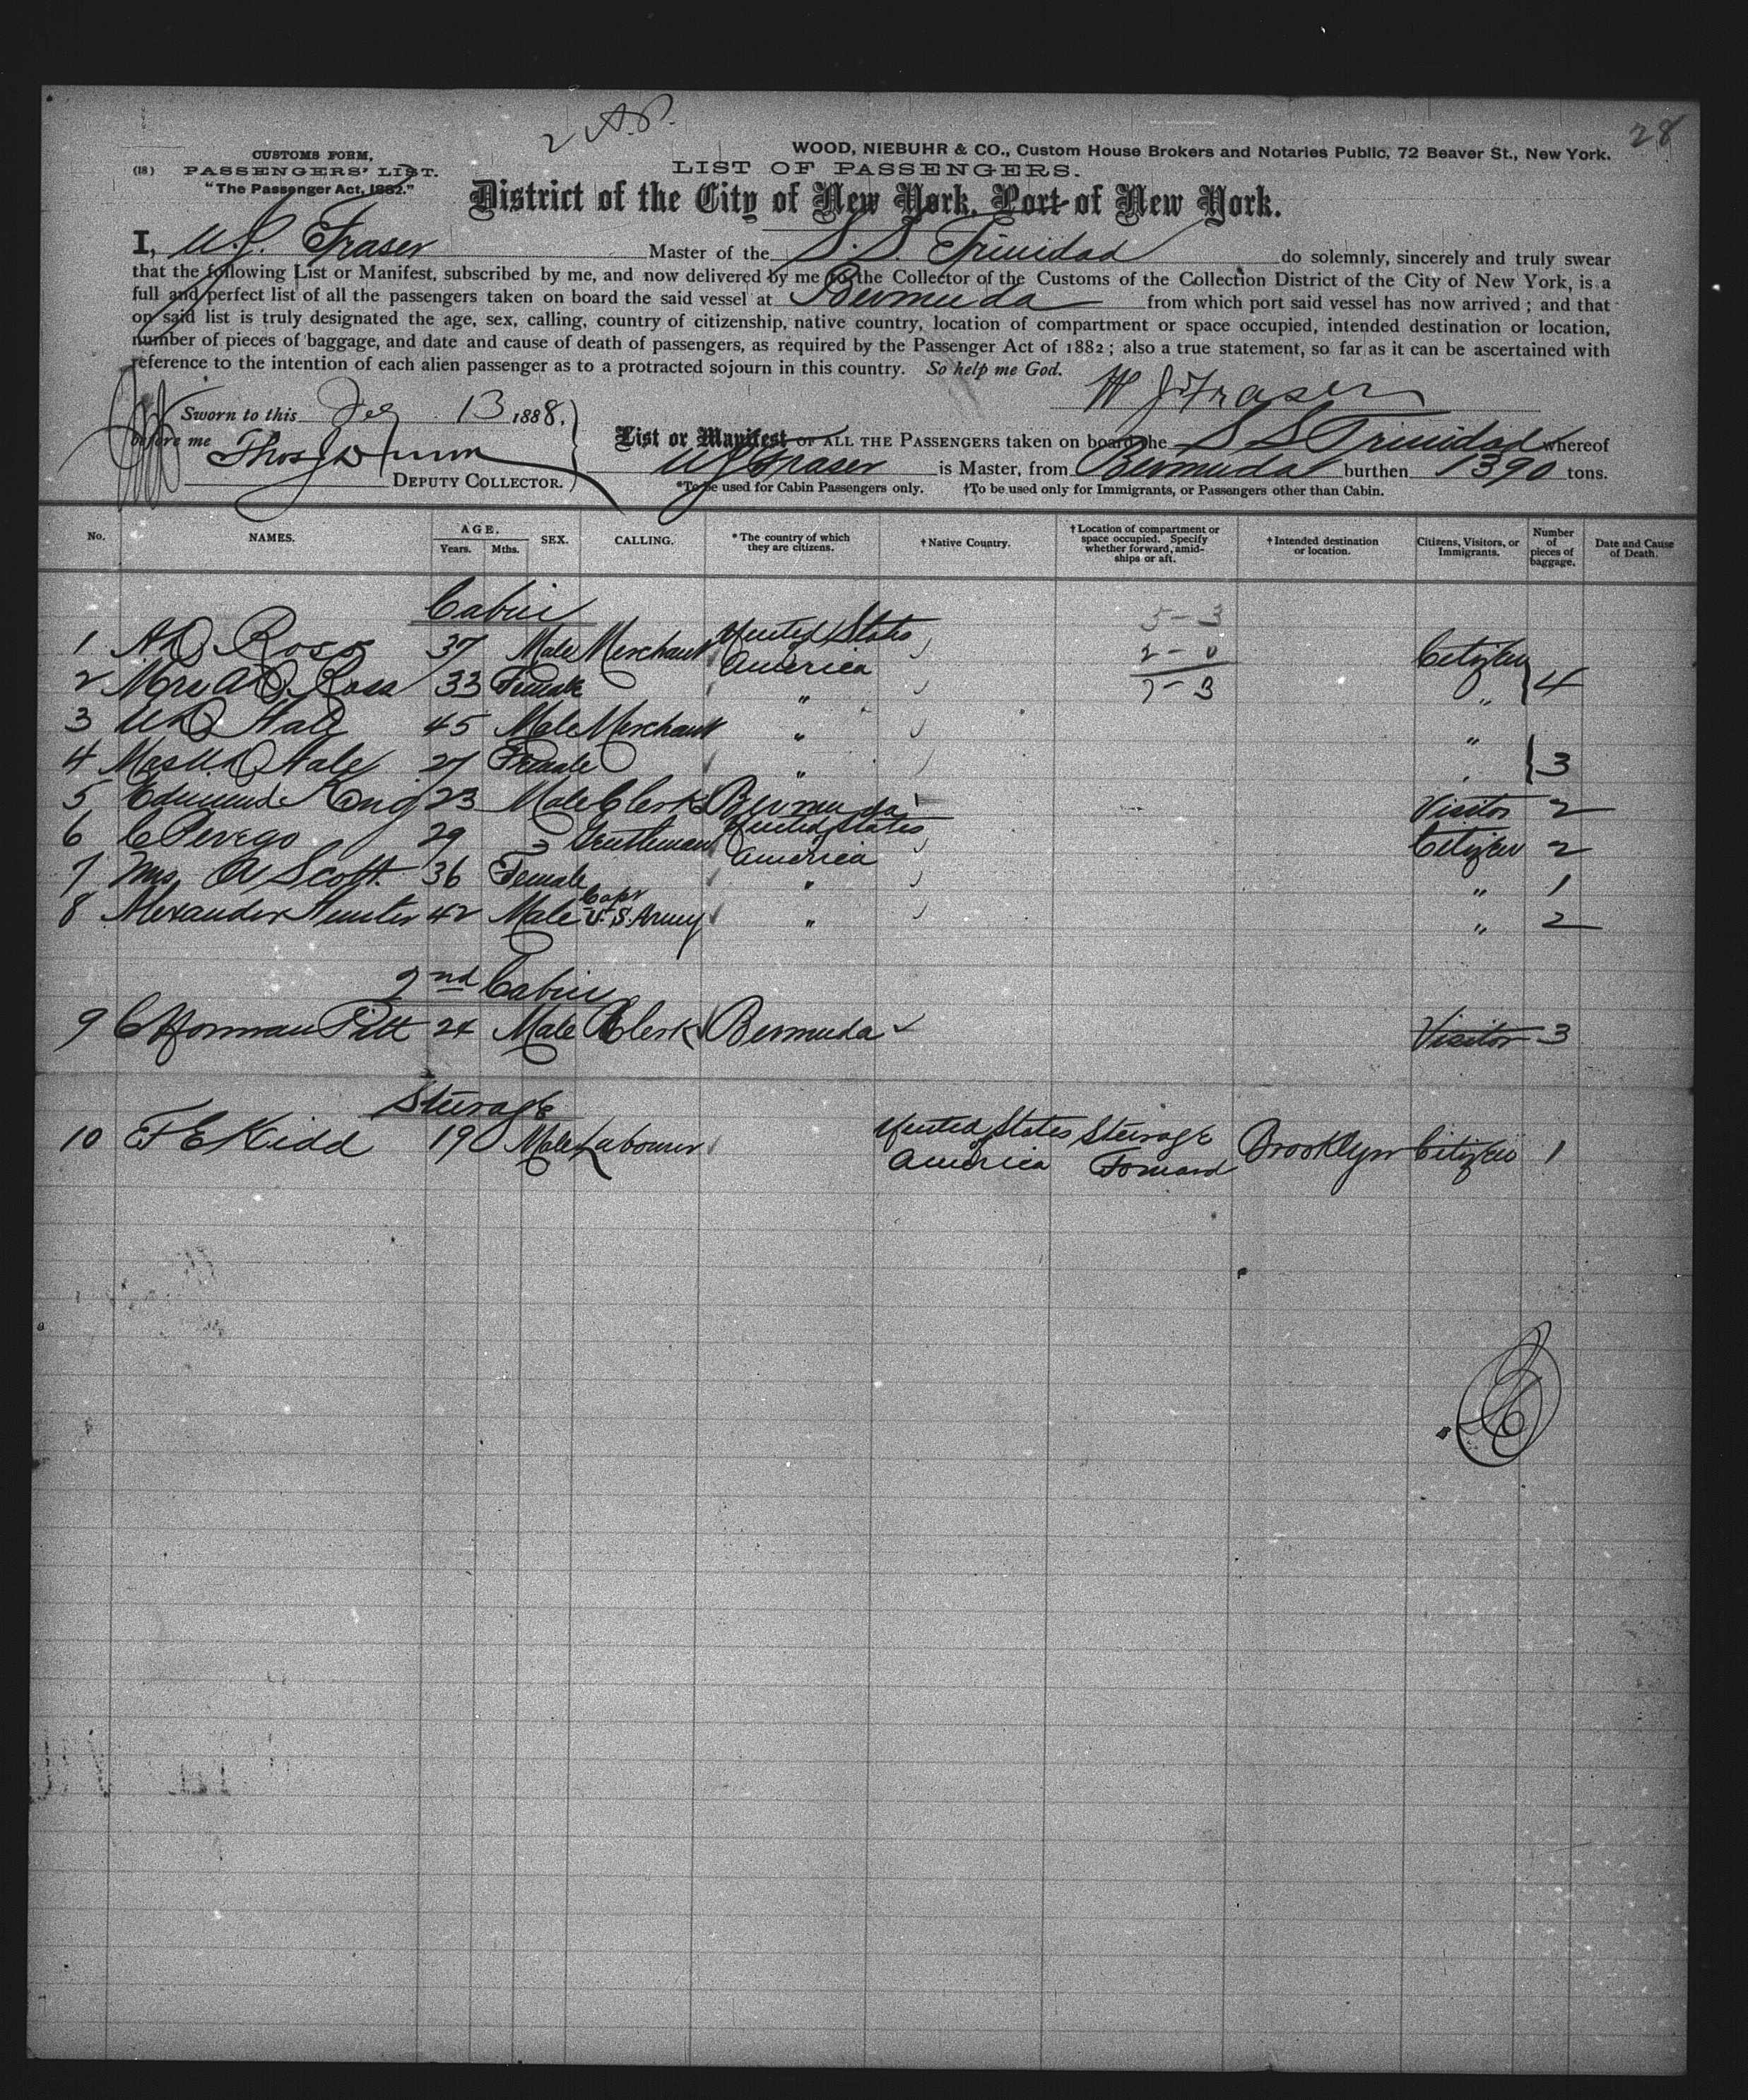 2 A.P.
28
CUSTOMS FORM,
WOOD, NIEBUHR & CO., Custom House Brokers and Notaries Public, 72 Beaver St., New York.
(18) PASSENGERS' LIST.
LIST OF PASSENGERS.
"The Passenger Act, 1882."
District of the City of New York, Port of New York.
I, W.J. Fraser Master of the S.S. Trinidad do solemnly, sincerely and truly swear
that the following List or Manifest, subscribed by me, and now delivered by me to the Collector of the Customs of the Collection District of the City of New York, is a
full and perfect list of all the passengers taken on board the said vessel at Bermuda from which port said vessel has now arrived; and that
on said list is truly designated the age, sex, calling, country of citizenship, native country, location of compartment or space occupied, intended destination or location,
number of pieces of baggage, and date and cause of death of passengers, as required by the Passenger Act of 1882; also a true statement, so far as it can be ascertained with
reference to the intention of each alien passenger as to a protracted sojourn in this country. So help me God.
W J Fraser
Sworn to this 13 1888,
before me Thos J Dunn
DEPUTY COLLECTOR.
List or Manifest OF ALL THE PASSENGERS taken on board the S S Trinidad whereof
W J Fraser is Master, from Bermuda burthen 1390 tons.
*To be used for Cabin Passengers only. †To be used only for Immigrants, or Passengers other than Cabin.
No. NAMES. AGE. Years. Mths. SEX. CALLING. *The country of which they are citizens. †Native Country. †Location of compartment or space occupied. Specify whether forward, amidships or aft. †Intended destination or location. Citizens, Visitors, or Immigrants. Number of pieces of baggage. Date and Cause of Death.
Cabin
5-3
2-0
7-3
1 A D Ross 37 Male Merchant United States of America Citizen
2 Mrs A D Ross 33 Female " " 4
3 W D Hale 45 Male Merchant " "
4 Mrs W D Hale 27 Female " " 3
5 Edmund King 23 Male Clerk Bermuda Visitor 2
6 C Perego 29 " Gentleman United States of America Citizen 2
7 Mrs. A Scott 36 Female " " 1
8 Alexander Hunter 42 Male Capt U.S. Army " " 2
2nd Cabin
9 C Horman Pitt 24 Male Clerk Bermuda Visitor 3
Steerage
10 F E Kidd 19 Male Labourer United States of America Steerage Forward Brooklyn Citizen 1